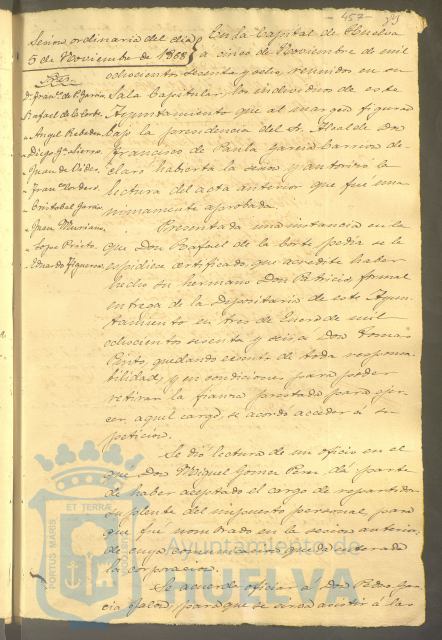 457
Sesion ordinaria del dia
5 de Noviembre de 1868
Sres.
Dn. Franco. de P. Garcia
Rafael de la Corte
Angel Rebollo
Diego Ga. Sierra
Juan de Vides
Fran. Cordero
Cristobal Garcia
Juan Muriano
Lope Prieto
Eduardo Figueroa
En la Capital de Huelva
a cinco de Noviembre de mil
ochocientos sesenta y ocho, reunidos en su
Sala Capitular, los individuos de este
Ayuntamiento que al margen figuran
bajo la presidencia del Sr. Alcalde Don
Francisco de Paula Garcia Carrion de-
claró habierta la sesion y autorizó la
lectura del acta anterior que fué una-
nimamente aprobada.
Presentada una instancia en la
que Don Rafael de la Corte pedia se le
espidiese certificado, que acredite haber
hecho su hermano Don Patricio, formal
entrega de la Depositaria de este Ayun-
tamiento en tres de Enero de mil
ochocientos sesenta y seis a Don Tomas
Pinto, quedando esento de toda responsa-
bilidad, y en condiciones para poder
retirar la fianza prestada para ejer-
cer aquel cargo, se acordó acceder á su
peticion.
Se dió lectura de un oficio en el
que Don Miguel Gomez Perez dá parte
de haber aceptado el cargo de repartidor
suplente del impuesto personal para
que fué nombrado en la sesion anterior,
de cuya comunicacion quedó enterada
la corporacion.
Se acuerda oficiar á Don Pedro Gar-
cia para que se sirva asistir á las
PORTUS MARIS ET TERRÆ
Ayuntamiento de
HUELVA